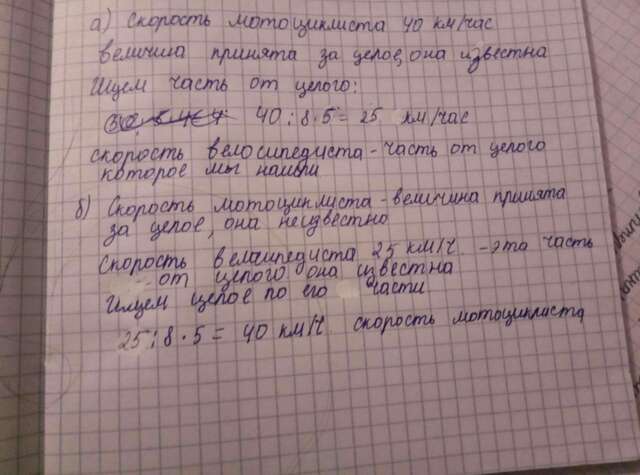 а) Скорость мотоциклиста 40 км/час
величина принята за целое, она известна
Ищем часть от целого:
40 : 8 · 5 = 25 км/час
скорость велосипедиста - часть от целого
которое мы нашли
б) Скорость мотоциклиста - величина принята
за целое, она неизвестно
Скорость велосипедиста 25 км/ч - эта часть
от целого она известна
Ищем целое по его части
25 : 8 · 5 = 40 км/ч скорость мотоциклиста